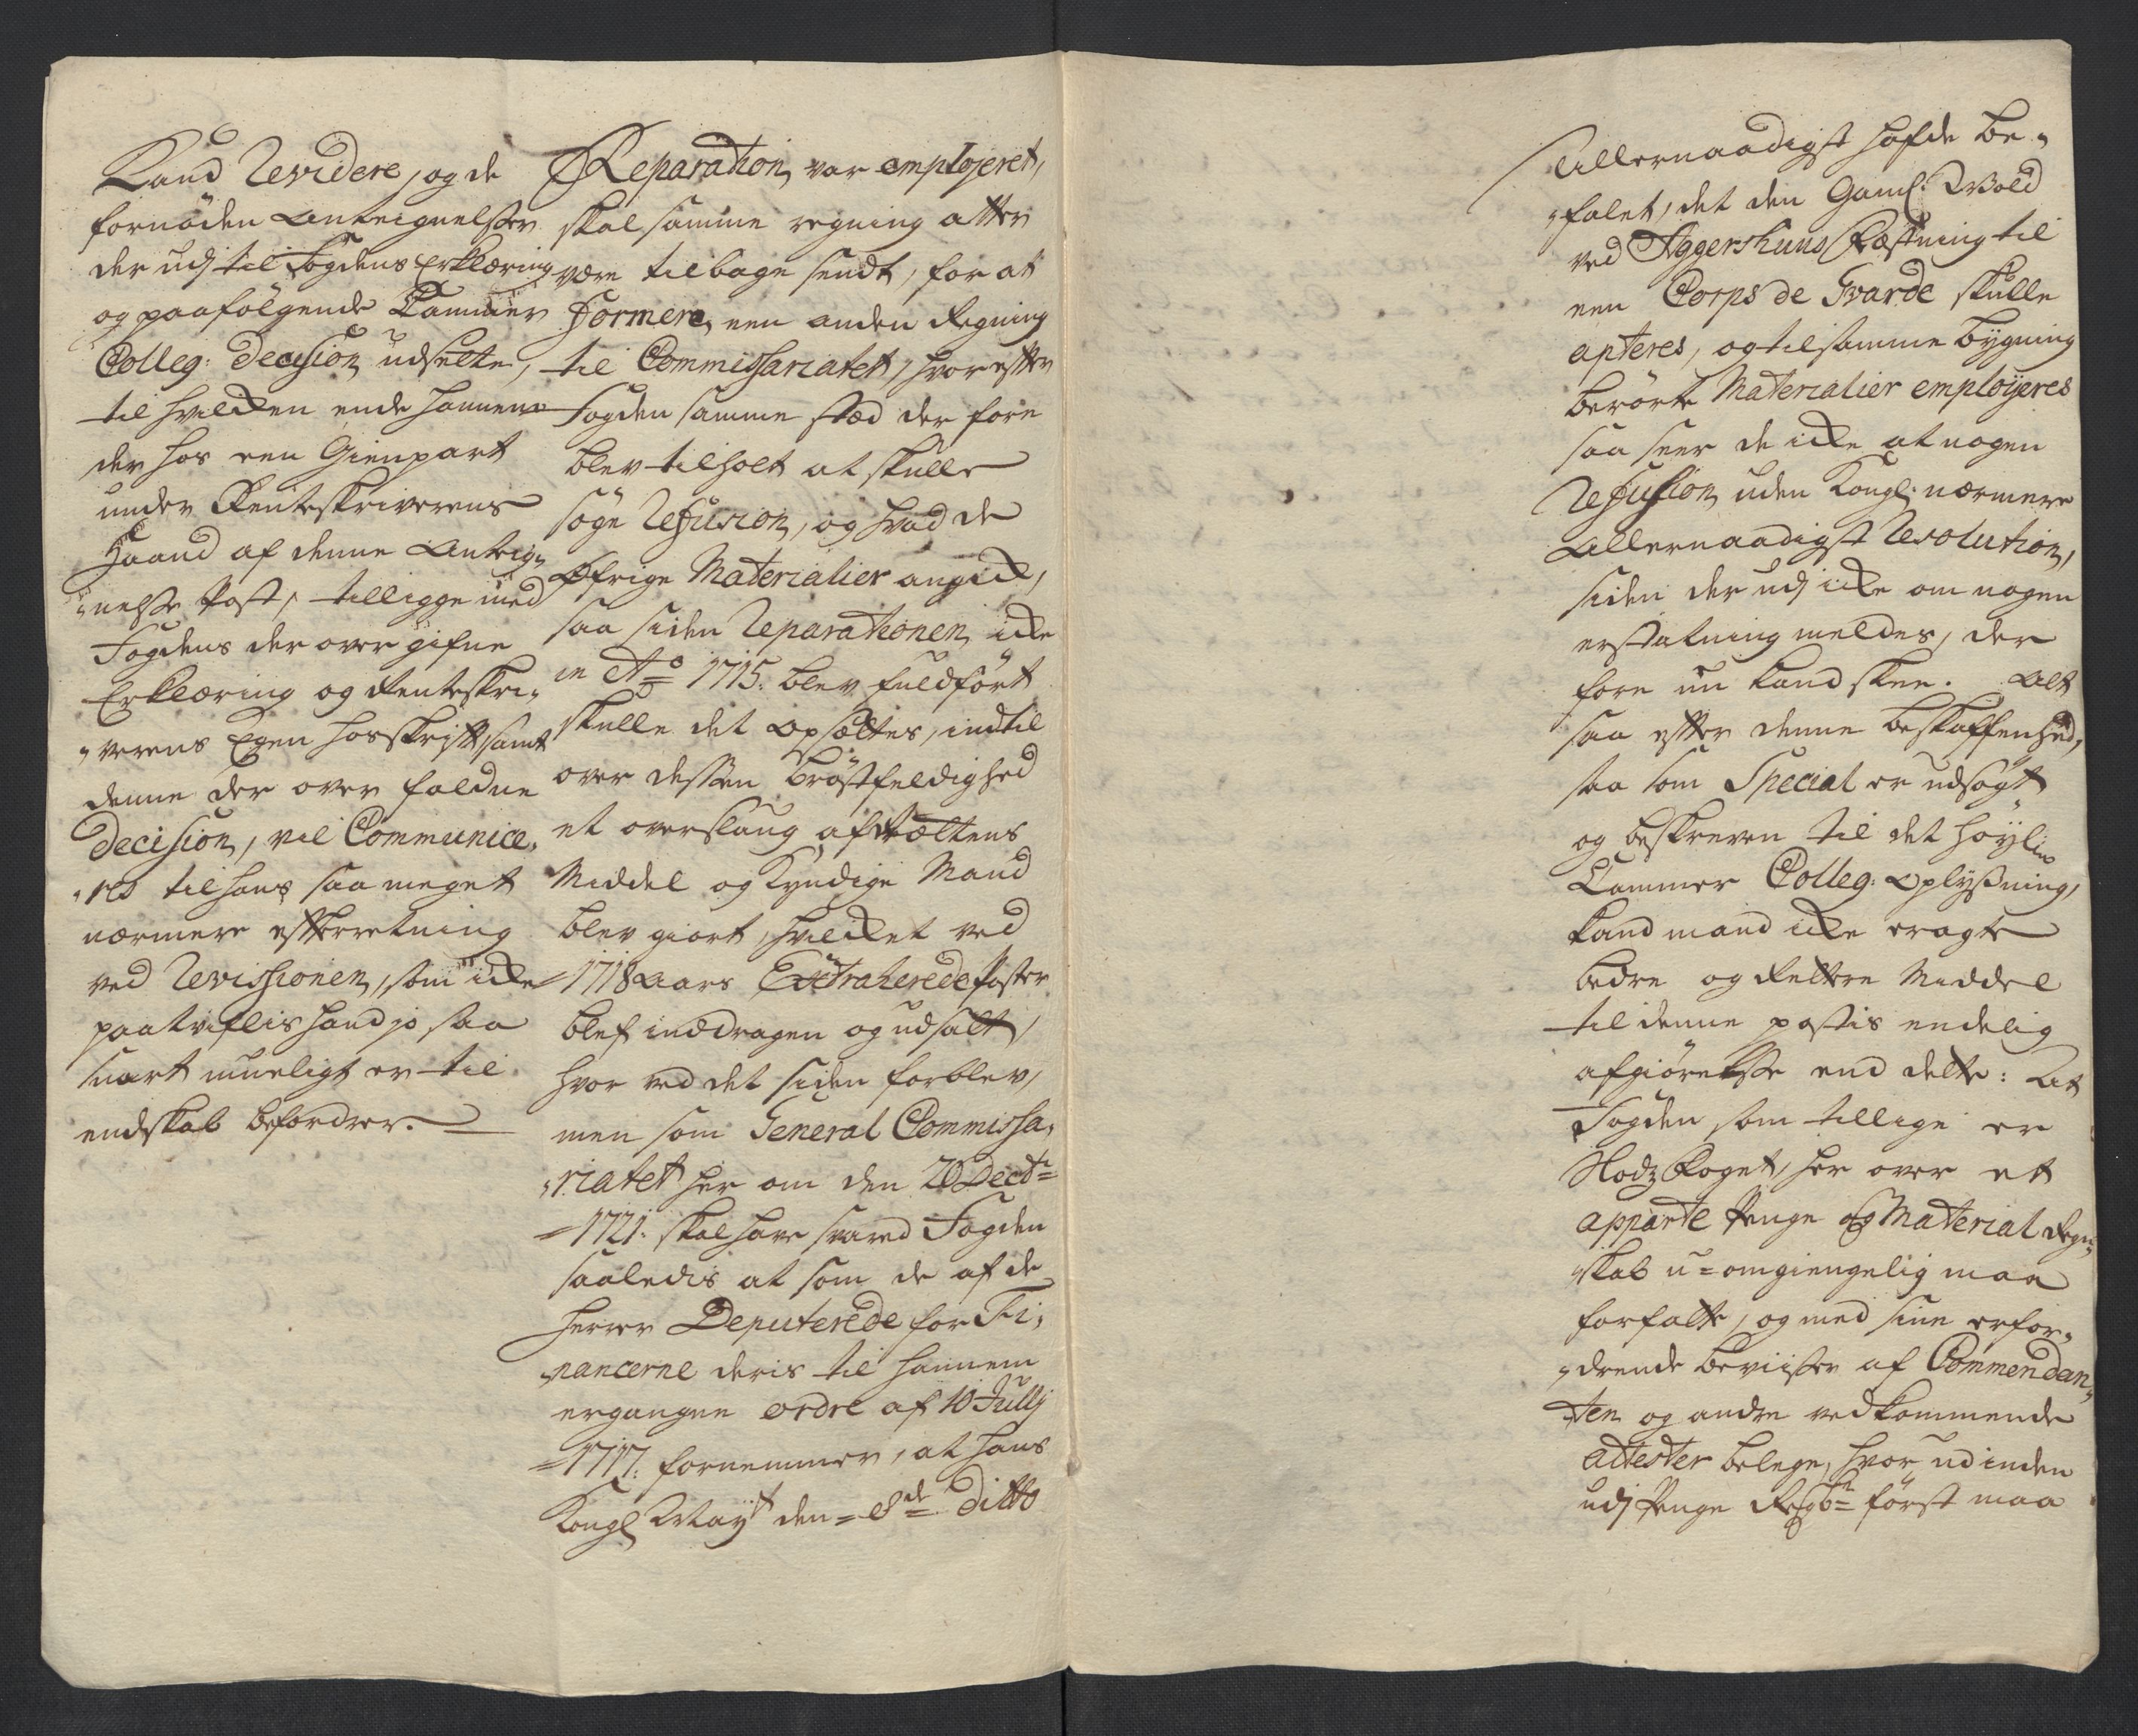 Kand Revidere, og de
fornöden Antegnelser
der udj til Fogdens Erklæring
og paafölgende Cammer
Colleg: Decision udsette,
til hvilken ende hannem
der hos een Gienpart
under Renteskriverens
Haand af denne Anteg„
„nelsse Post, tilligge med
Fogdens der over gifne
Erklæring og Renteskri„
„verens Egen hosskrifft, samt
denne der over faldne
Decision, vil Communice„
„res til hans saa meget
nærmere effterretning
ved Revissionen, som icke
paatvifles hand jo saa
snart mueligt er til
endskab befordrer.
Reparation var employeret,
skal samme regning atter
være tilbage sendt, for at
Formere een anden Regning
til Commissariatet, hvor effter
Fogden samme stæd der fore
blev tilholt at skulle
söge Refusion, og hvad de
Öfrige Materialier angick,
saa siden Reparationen icke
in Ao 1715: blev fuldfört
skulle det Opsættes, indtil
over dessen bröstfeldighed
et overslaug af Rættens
Middel og Kyndige Mænd
blev giort, hvilcket ved
1718 Aars Extraherede Poster
blef inddragen og udsatt,
hvor ved det siden forblev,
men som General Commissa„
„riatet her om den 20 Decbr
1721: skal have svared Fogden
saaledis at som de af de
Herrer Deputerede for Fi„
nancerne deris til hannem
ergangne ordre af 10 Julij
1717: fornemmer, at Hans
Kongl May:t den 8de Ditto
Allernaadigst hafde be„
„falet, det den Gaml: Vold
ved Aggershuus Fæstning til
een Corps de Gvarde skulle
apteres, og til samme bygning
berörte Materialier employeres
saa seer de icke at nogen
Refusion uden Kongl: nærmere
Allernaadigst Resolution,
siden der udj icke om nogen
erstatning meldes, der
fore nu kand skee. Alt
saa effter denne beskaffenhed,
saa som Special er udsögt
og beskreven til det höylige
Cammer Colleg: Oplyssning,
kand mand icke eragte
bedre og Rettere Middel
til denne postis endelig
afgiörelsse end dette: At
Fogden som tillige er
Slodz Foget, her over et
apparte Penge og Material Regn„
„skab u=omgiengelig maa
forfatte, og med sine erfor„
„drende beviisser af Commendan„
ten og andre vedkommende
Attester belege, hvor ud inden
udj Penge Regsb: först maa